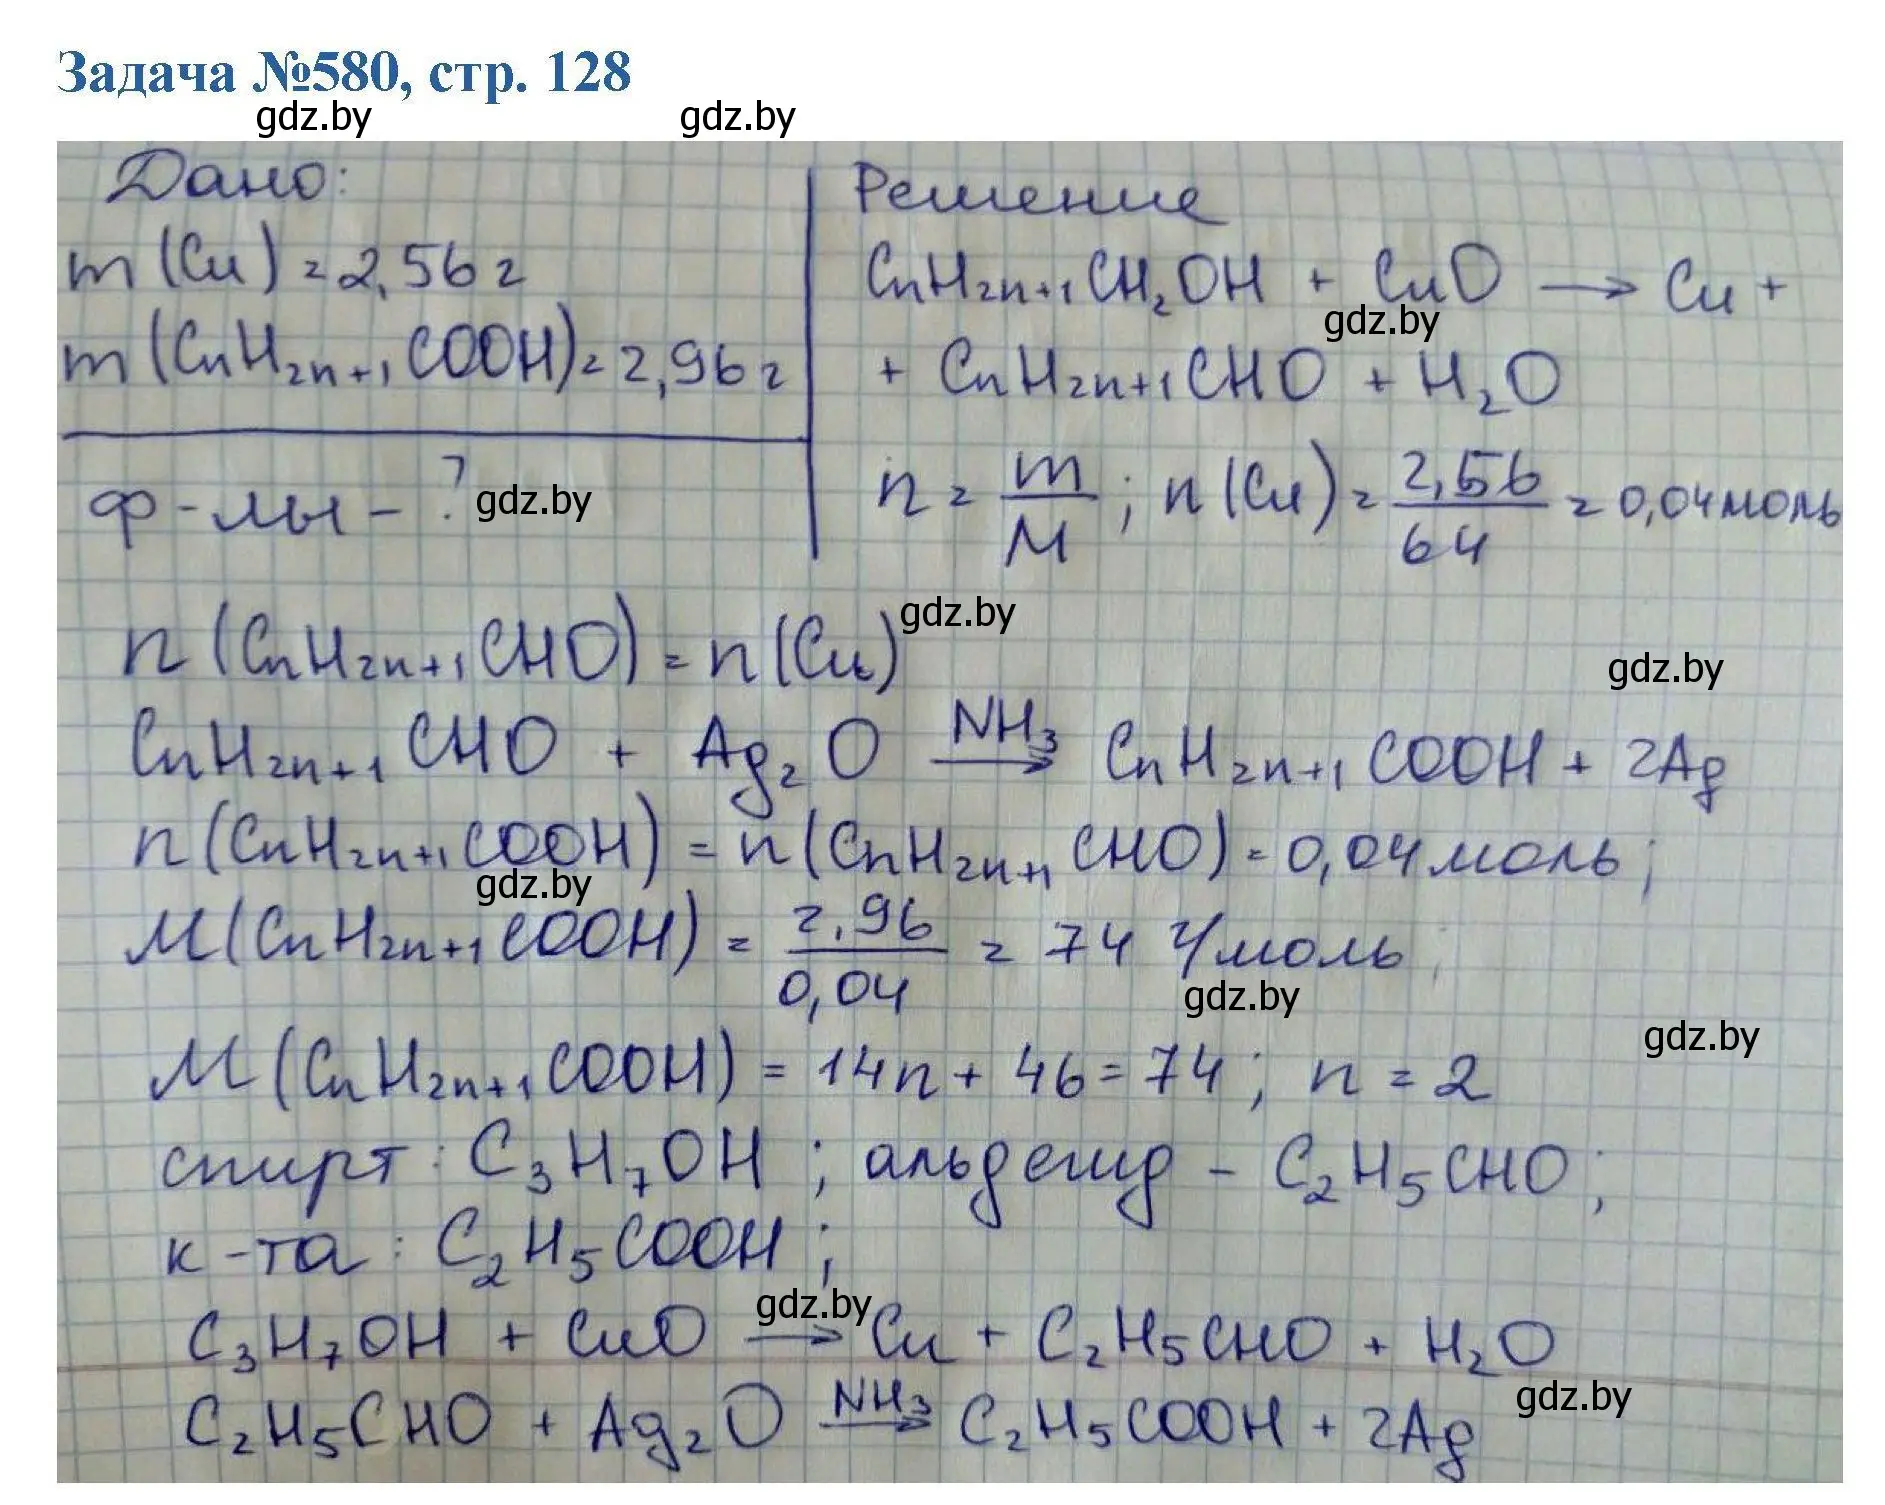 Задача №580, стр. 128
gdz.by gdz.by
Дано:
m(Cu) = 2,56 г
m(CnH2n+1COOH) = 2,96 г
ф-лы - ?
gdz.by
Решение
CnH2n+1CH2OH + CuO → Cu +
gdz.by
+ CnH2n+1CHO + H2O
n = m/M; n(Cu) = 2,56/64 = 0,04 моль
gdz.by
n(CnH2n+1CHO) = n(Cu)
gdz.by
CnH2n+1CHO + Ag2O NH3→ CnH2n+1COOH + 2Ag
n(CnH2n+1COOH) = n(CnH2n+1CHO) = 0,04 моль;
gdz.by
M(CnH2n+1COOH) = 2,96/0,04 = 74 г/моль;
gdz.by
gdz.by
M(CnH2n+1COOH) = 14n + 46 = 74; n = 2
спирт: C3H7OH; альдегид - C2H5CHO;
к-та: C2H5COOH;
gdz.by
C3H7OH + CuO → Cu + C2H5CHO + H2O
gdz.by
C2H5CHO + Ag2O NH3→ C2H5COOH + 2Ag